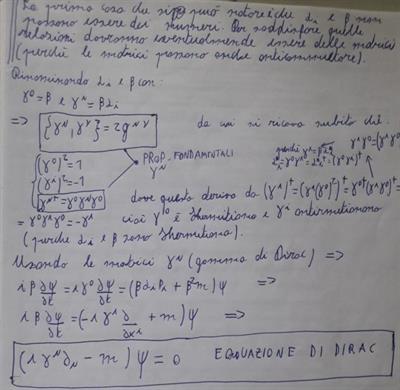 La prima cosa che si può notare è che αi e β non
possono essere dei numeri. Per soddisfare quelle
relazioni dovranno eventualmente essere delle matrici
(perché le matrici possono anche anticommutare).
Rinominando αi e β con:
γ⁰=β e γⁱ=βαi
=> {γᴹ, γᵛ}=2gᴹᵛ da cui si ricava subito che:
(γ⁰)²=1
(γⁱ)²=-1
PROP. FONDAMENTALI γᴹ
γᴹ⁺=γ⁰γᴹγ⁰ dove questo deriva da (γⁱ)⁺=(γⁱ(γ⁰)²)⁺=γ⁰⁺(γⁱγ⁰)⁺=
=γ⁰γⁱγ⁰γ⁰=-γⁱ cioè γ⁰ è Hermitiana e γⁱ antihermitiana
(perché αi e β sono Hermitiane).
Usando le matrici γᴹ (gamma di Dirac) =>
iβ ∂ψ/∂t = iγ⁰ ∂ψ/∂t = (βαiPi + β²m)ψ =>
iβ ∂ψ/∂t = (-iγⁱ ∂/∂xⁱ + m)ψ =>
(iγᴹ∂ᴹ - m)ψ = 0 EQUAZIONE DI DIRAC